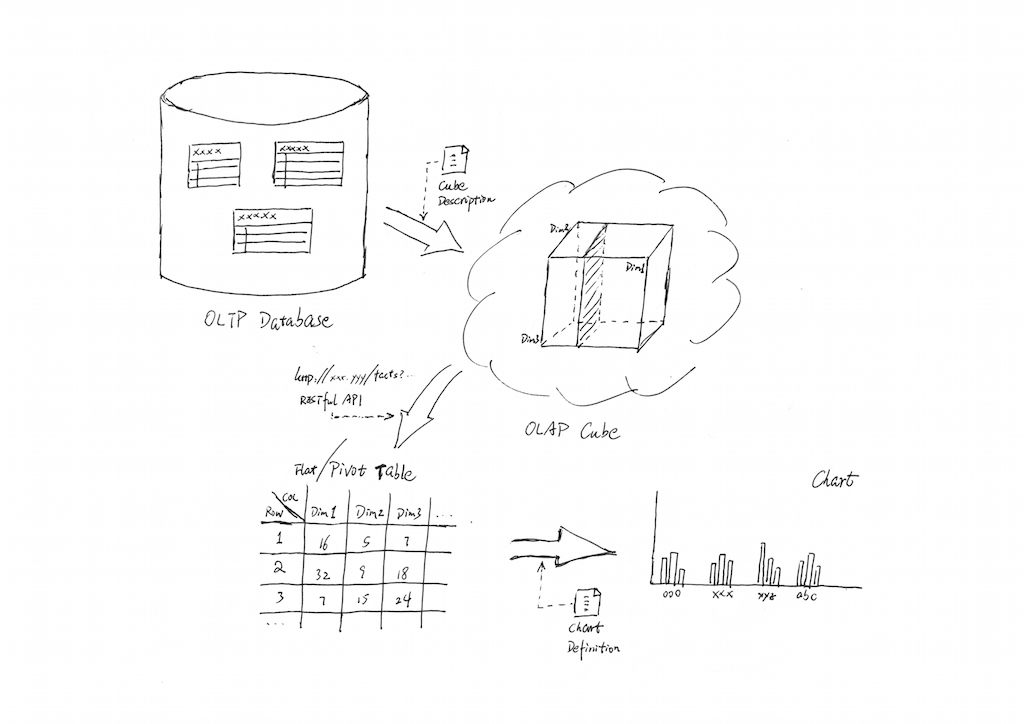 xxxx
xxxxx
xxxxx
OLTP Database
Cube
Description
Dim2
Dim1
Dim3
OLAP Cube
http://xxx.yyy/facts?...
RESTful API
Flat/Pivot Table
Col
Row Dim1 Dim2 Dim3 ...
1 16 5 7
2 32 9 18
3 7 15 24
...
Chart
Definition
Chart
000 xxx xyz abc